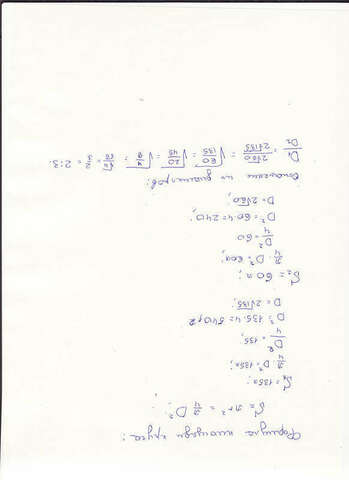 Формула площади круга:
S = πr² = π/4 D²;
S₁ = 135π;
π/4 · D² = 135π;
D²/4 = 135;
D² = 135·4 = 540;
D = 2√135;
S₂ = 60π;
π/4 · D² = 60π;
D²/4 = 60
D² = 60·4 = 240;
D = 2√60;
Отношение их диаметров:
D₁/D₂ = 2√60/2√135 = √60/135 = √20/45 = √4/9 = √4/√9 = 2/3 = 2:3.